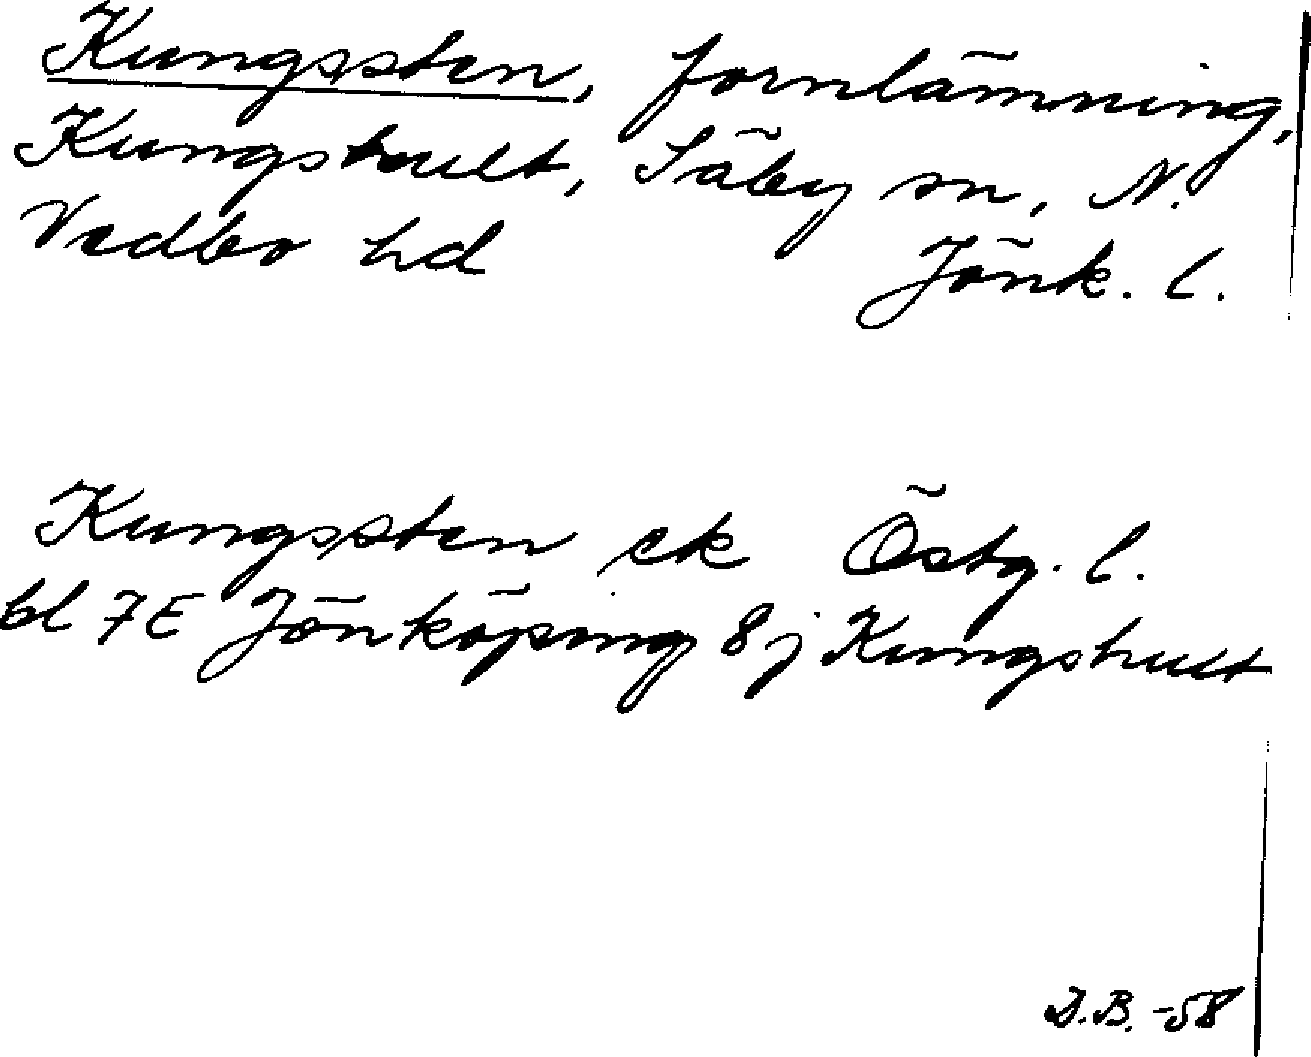 Kungssten, fornlämning,
Kungshult, Säby sn, N.
Vedbo hd Jönk. l.
Kungssten ek Östg. l.
bl 7E Jönköping 8j Kungshult
D.B. -58